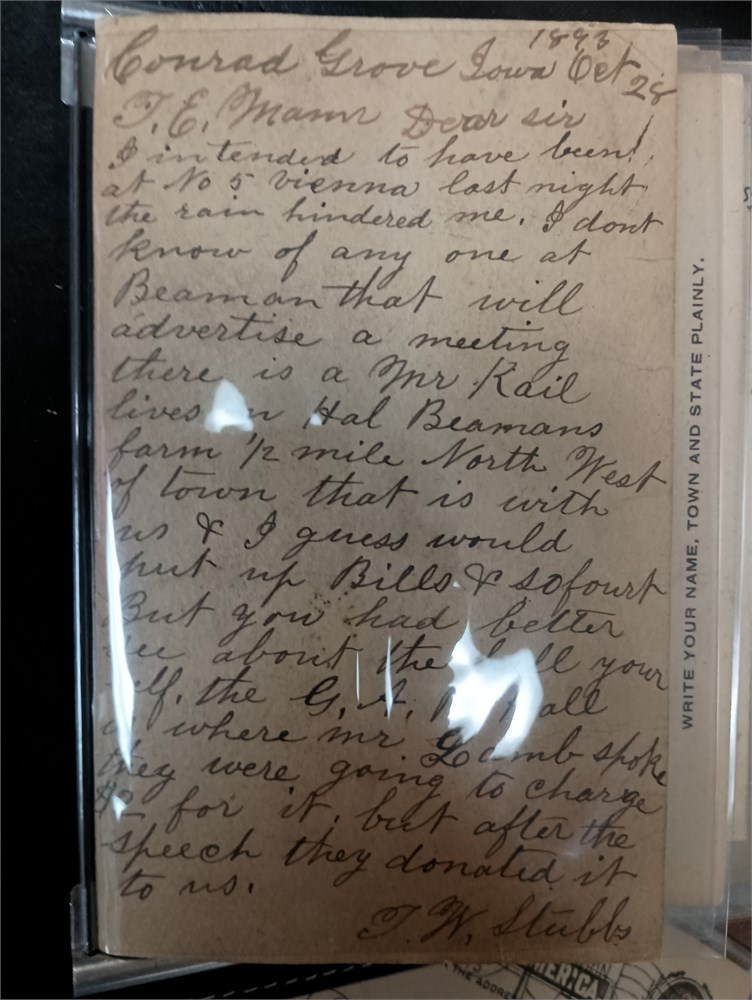 1893
Conrad Grove Iowa Oct 28
T. E. Mann Dear sir
I intended to have been
at No 5 vienna last night
the rain hindered me. I dont
know of any one at
Beaman that will
advertise a meeting
there is a Mr Kail
lives n Hal Beamans
farm 1/2 mile North West
of town that is with
us & I guess would
put up Bills & sofourt
But you had better
see about the ll your
elf. the G. A. all
is where mr Lamb spoke
they were going to charge
$2 for it. but after the
speech they donated it
to us.
T. W. Stubbs
WRITE YOUR NAME, TOWN AND STATE PLAINLY.
THE ADDRE
AMERICA